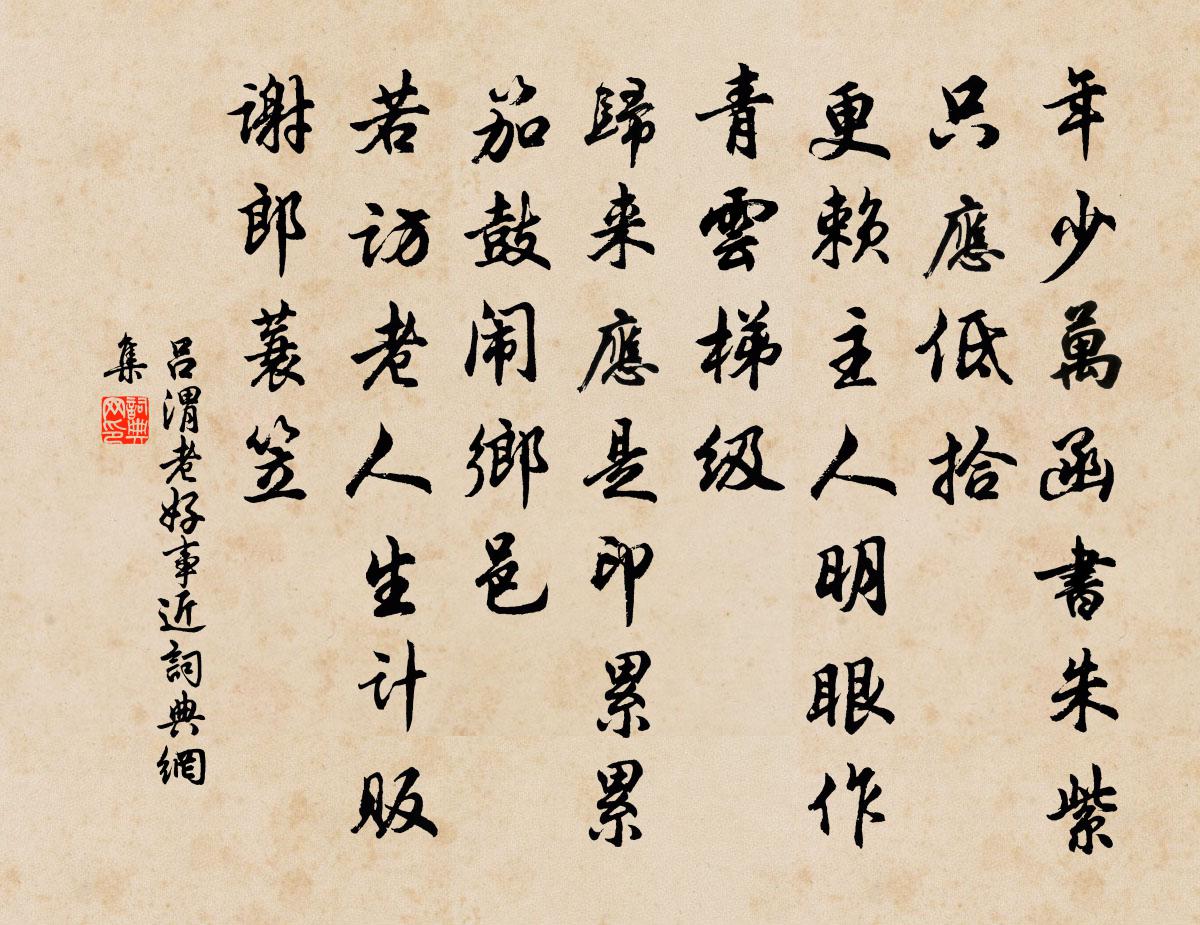 年少萬函書朱紫
只應低拾
更賴主人明眼作
青雲梯级
歸来應是印累累
笳鼓闹鄉邑
若访老人生计販
谢郎蓑笠
吕渭老好事近詞典網
集
詞典
网印